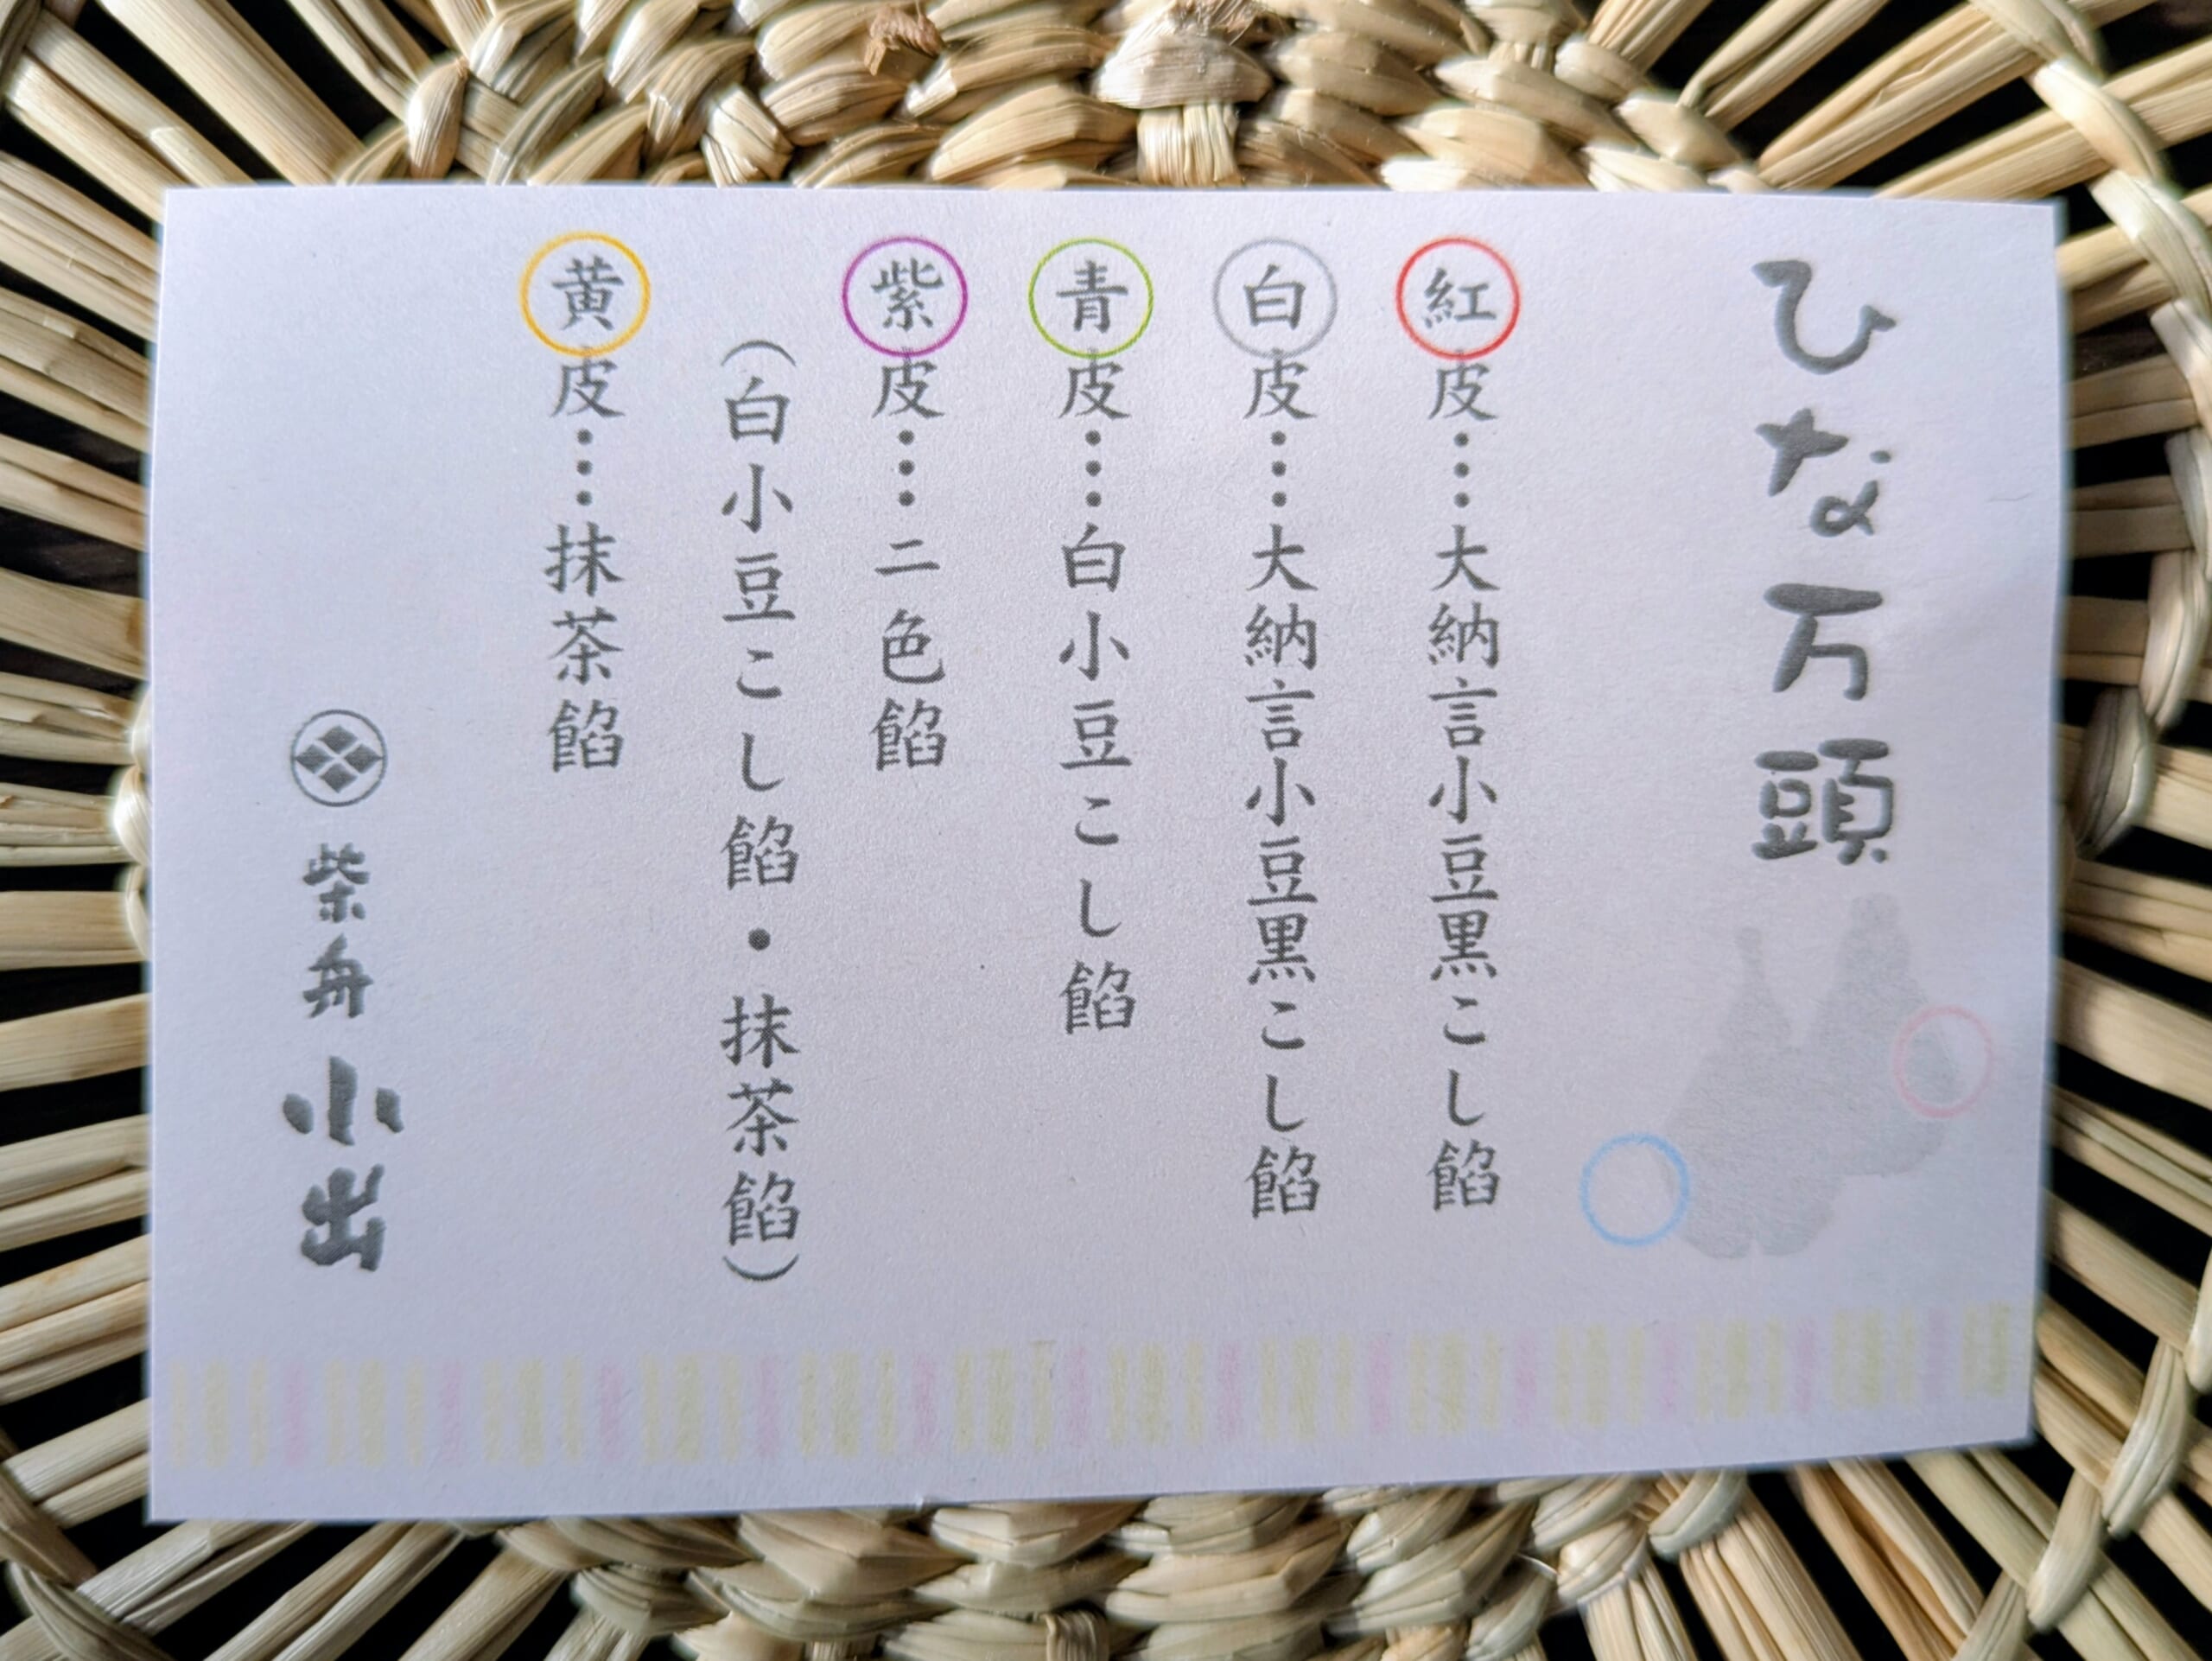 ひな万頭
紅皮…大納言小豆黒こし餡
白皮…大納言小豆黒こし餡
青皮…白小豆こし餡
紫皮…二色餡
（白小豆こし餡・抹茶餡）
黄皮…抹茶餡
柴舟小出